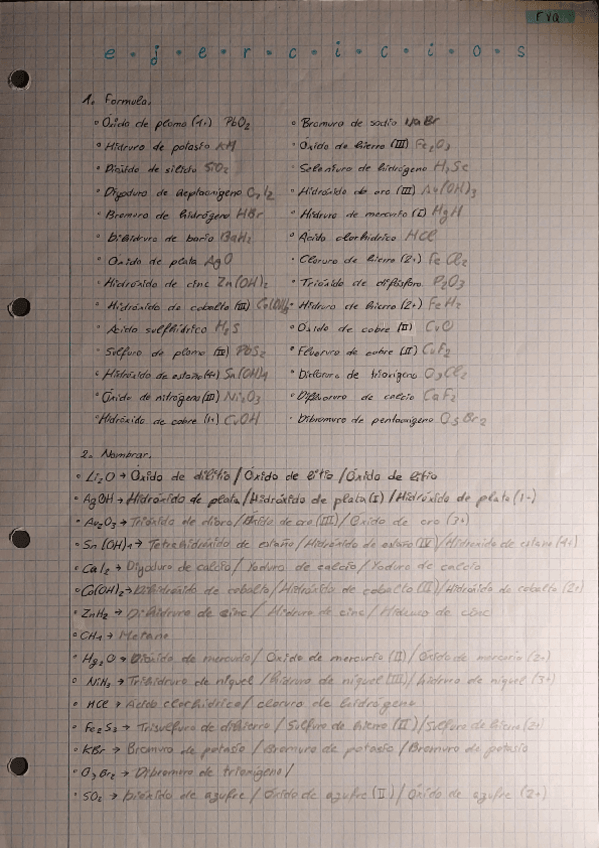 Eva
e · j · e · r · c · i · c · i · o · s
1. Formula.
• Óxido de plomo (4+) PbO2
• Hidruro de potasio KH
• Dióxido de silicio SiO2
• Diyoduro de heptaoxígeno O7I2
• Bromuro de hidrógeno HBr
• Dihidruro de bario BaH2
• Óxido de plata AgO
• Hidróxido de cinc Zn(OH)2
• Hidróxido de cobalto (III) Co(OH)3
• Ácido sulfhídrico H2S
• Sulfuro de plomo (IV) PbS2
• Hidróxido de estaño (4+) Sn(OH)4
• Óxido de nitrógeno (III) Ni2O3
• Hidróxido de cobre (1+) CuOH
• Bromuro de sodio NaBr
• Óxido de hierro (III) Fe2O3
• Seleniuro de hidrógeno H2Se
• Hidróxido de oro (III) Au(OH)3
• Hidruro de mercurio (I) HgH
• Ácido clorhídrico HCl
• Cloruro de hierro (2+) FeCl2
• Trióxido de difósforo P2O3
• Hidruro de hierro (2+) FeH2
• Óxido de cobre (II) CuO
• Fluoruro de cobre (II) CuF2
• Dicloruro de trioxígeno O3Cl2
• Difluoruro de calcio CaF2
• Dibromuro de pentaoxígeno O5Br2
2. Nombrar.
• Li2O → Óxido de dilitio / Óxido de litio / Óxido de litio
• AgOH → Hidróxido de plata / Hidróxido de plata (I) / Hidróxido de plata (1+)
• Au2O3 → Trióxido de dioro / Óxido de oro (III) / Óxido de oro (3+)
• Sn(OH)4 → Tetrahidróxido de estaño / Hidróxido de estaño (IV) / Hidróxido de estaño (4+)
• CaI2 → Diyoduro de calcio / Yoduro de calcio / Yoduro de calcio
• Co(OH)2 → Dihidróxido de cobalto / Hidróxido de cobalto (II) / Hidróxido de cobalto (2+)
• ZnH2 → Dihidruro de cinc / Hidruro de cinc / Hidruro de cinc
• CH4 → Metano
• Hg2O → Dióxido de mercurio / Óxido de mercurio (II) / Óxido de mercurio (2+)
• NiH3 → Trihidruro de níquel / hidruro de níquel (III) / hidruro de níquel (3+)
• HCl → Ácido clorhídrico / cloruro de hidrógeno
• Fe2S3 → Trisulfuro de dihierro / Sulfuro de hierro (II) / Sulfuro de hierro (2+)
• KBr → Bromuro de potasio / Bromuro de potasio / Bromuro de potasio
• O3Br2 → Dibromuro de trioxígeno /
• SO2 → Dióxido de azufre / Óxido de azufre (II) / Óxido de azufre (2+)